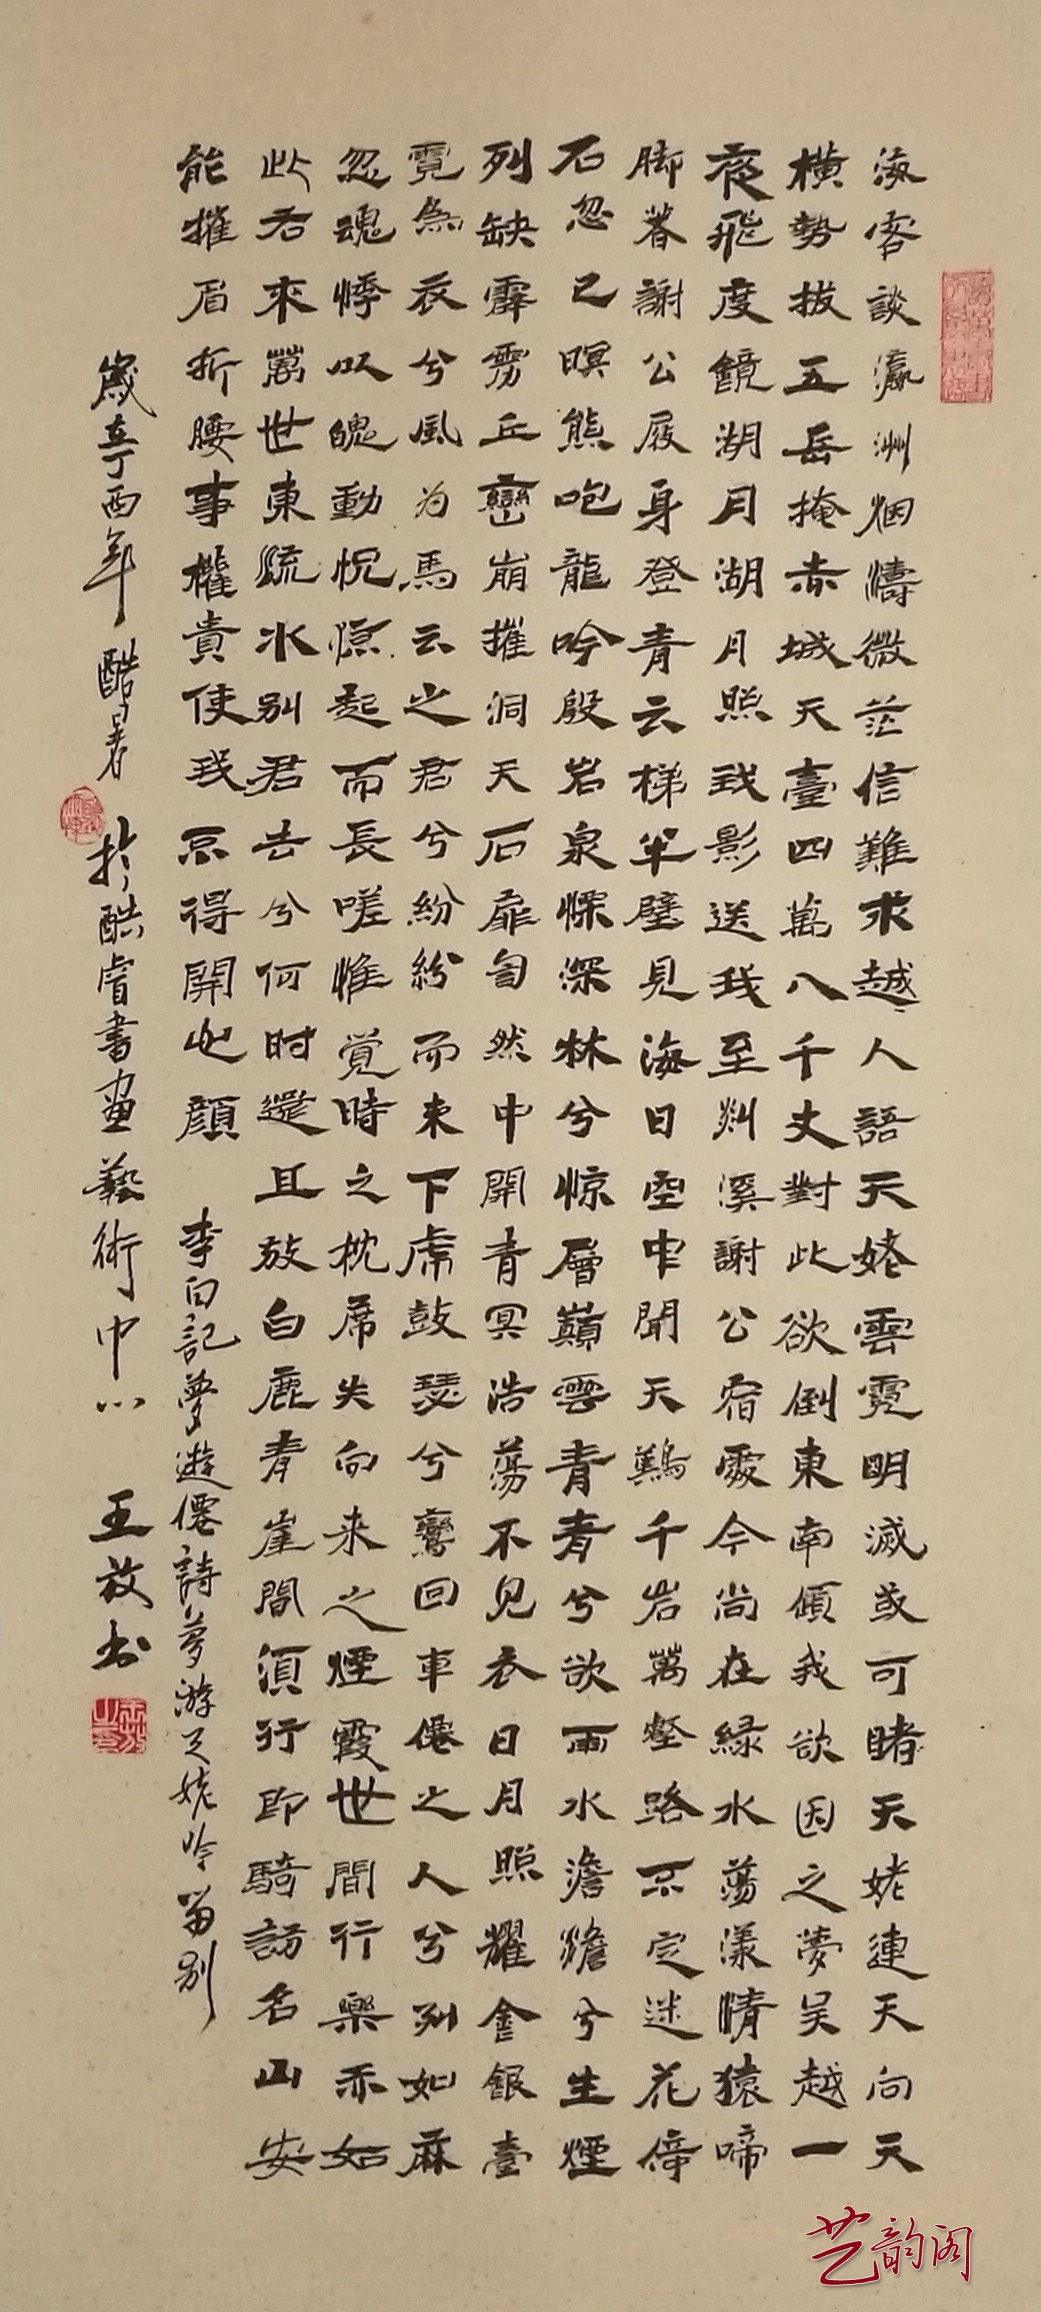 海客談瀛洲烟濤微茫信難求越人語天姥雲霓明滅或可睹天姥連天向天
橫勢拔五岳掩赤城天臺四萬八千丈對此欲倒東南傾我欲因之夢吴越一
夜飛度鏡湖月湖月照我影送我至剡溪謝公宿處今尚在緑水蕩漾情猿啼
脚著謝公屐身登青云梯半壁見海日空中聞天鷄千岩萬壑路不定迷花倚
石忽已暝熊咆龍吟殷岩泉慄深林兮惊層巔雲青青兮欲雨水澹澹兮生煙
列缺霹靂丘巒崩摧洞天石扉訇然中開青冥浩蕩不見衣日月照耀金銀臺
霓為衣兮風为馬云之君兮紛紛而来下虎鼓瑟兮鸞回車僊之人兮列如麻
忽魂悸以魄動怳惊起而長嗟惟覚時之枕席失向来之煙霞世間行樂亦如
此古來萬世東流水别君去兮何时還且放白鹿青崖間須行即騎訪名山安
能摧眉折腰事權貴使我不得開心顔
李白記夢遊僊詩夢游天姥吟留别
歲在丁酉年酷暑於酷睿書画藝術中心
王放书
艺韵阁